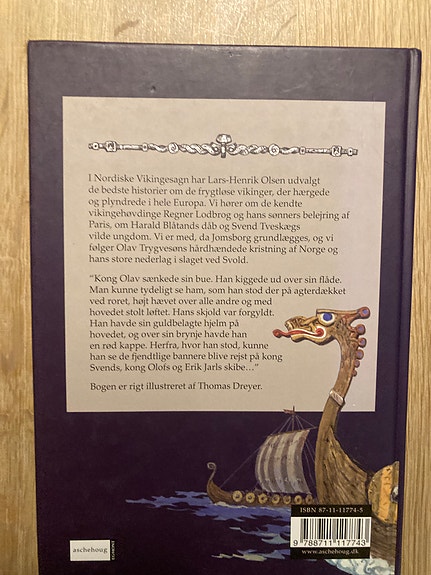 I Nordiske Vikingesagn har Lars-Henrik Olsen udvalgt
de bedste historier om de frygtløse vikinger, der hærgede
og plyndrede i hele Europa. Vi hører om de kendte
vikingehøvdinge Regner Lodbrog og hans sønners belejring af
Paris, om Harald Blåtands dåb og Svend Tveskægs
vilde ungdom. Vi er med, da Jomsborg grundlægges, og vi
følger Olav Trygvesøns hårdhændede kristning af Norge og
hans store nederlag i slaget ved Svold.
"Kong Olav sænkede sin bue. Han kiggede ud over sin flåde.
Man kunne tydeligt se ham, som han stod der på agterdækket
ved roret, højt hævet over alle andre og med
hovedet stolt løftet. Hans skjold var forgyldt.
Han havde sin guldbelagte hjelm på
hovedet, og over sin brynje havde han
en rød kappe. Herfra, hvor han stod, kunne
han se de fjendtlige bannere blive rejst på kong
Svends, kong Olofs og Erik Jarls skibe..."
Bogen er rigt illustreret af Thomas Dreyer.
ISBN 87-11-11774-5
9 788711 117743
www.aschehoug.dk
aschehoug
EGMONT